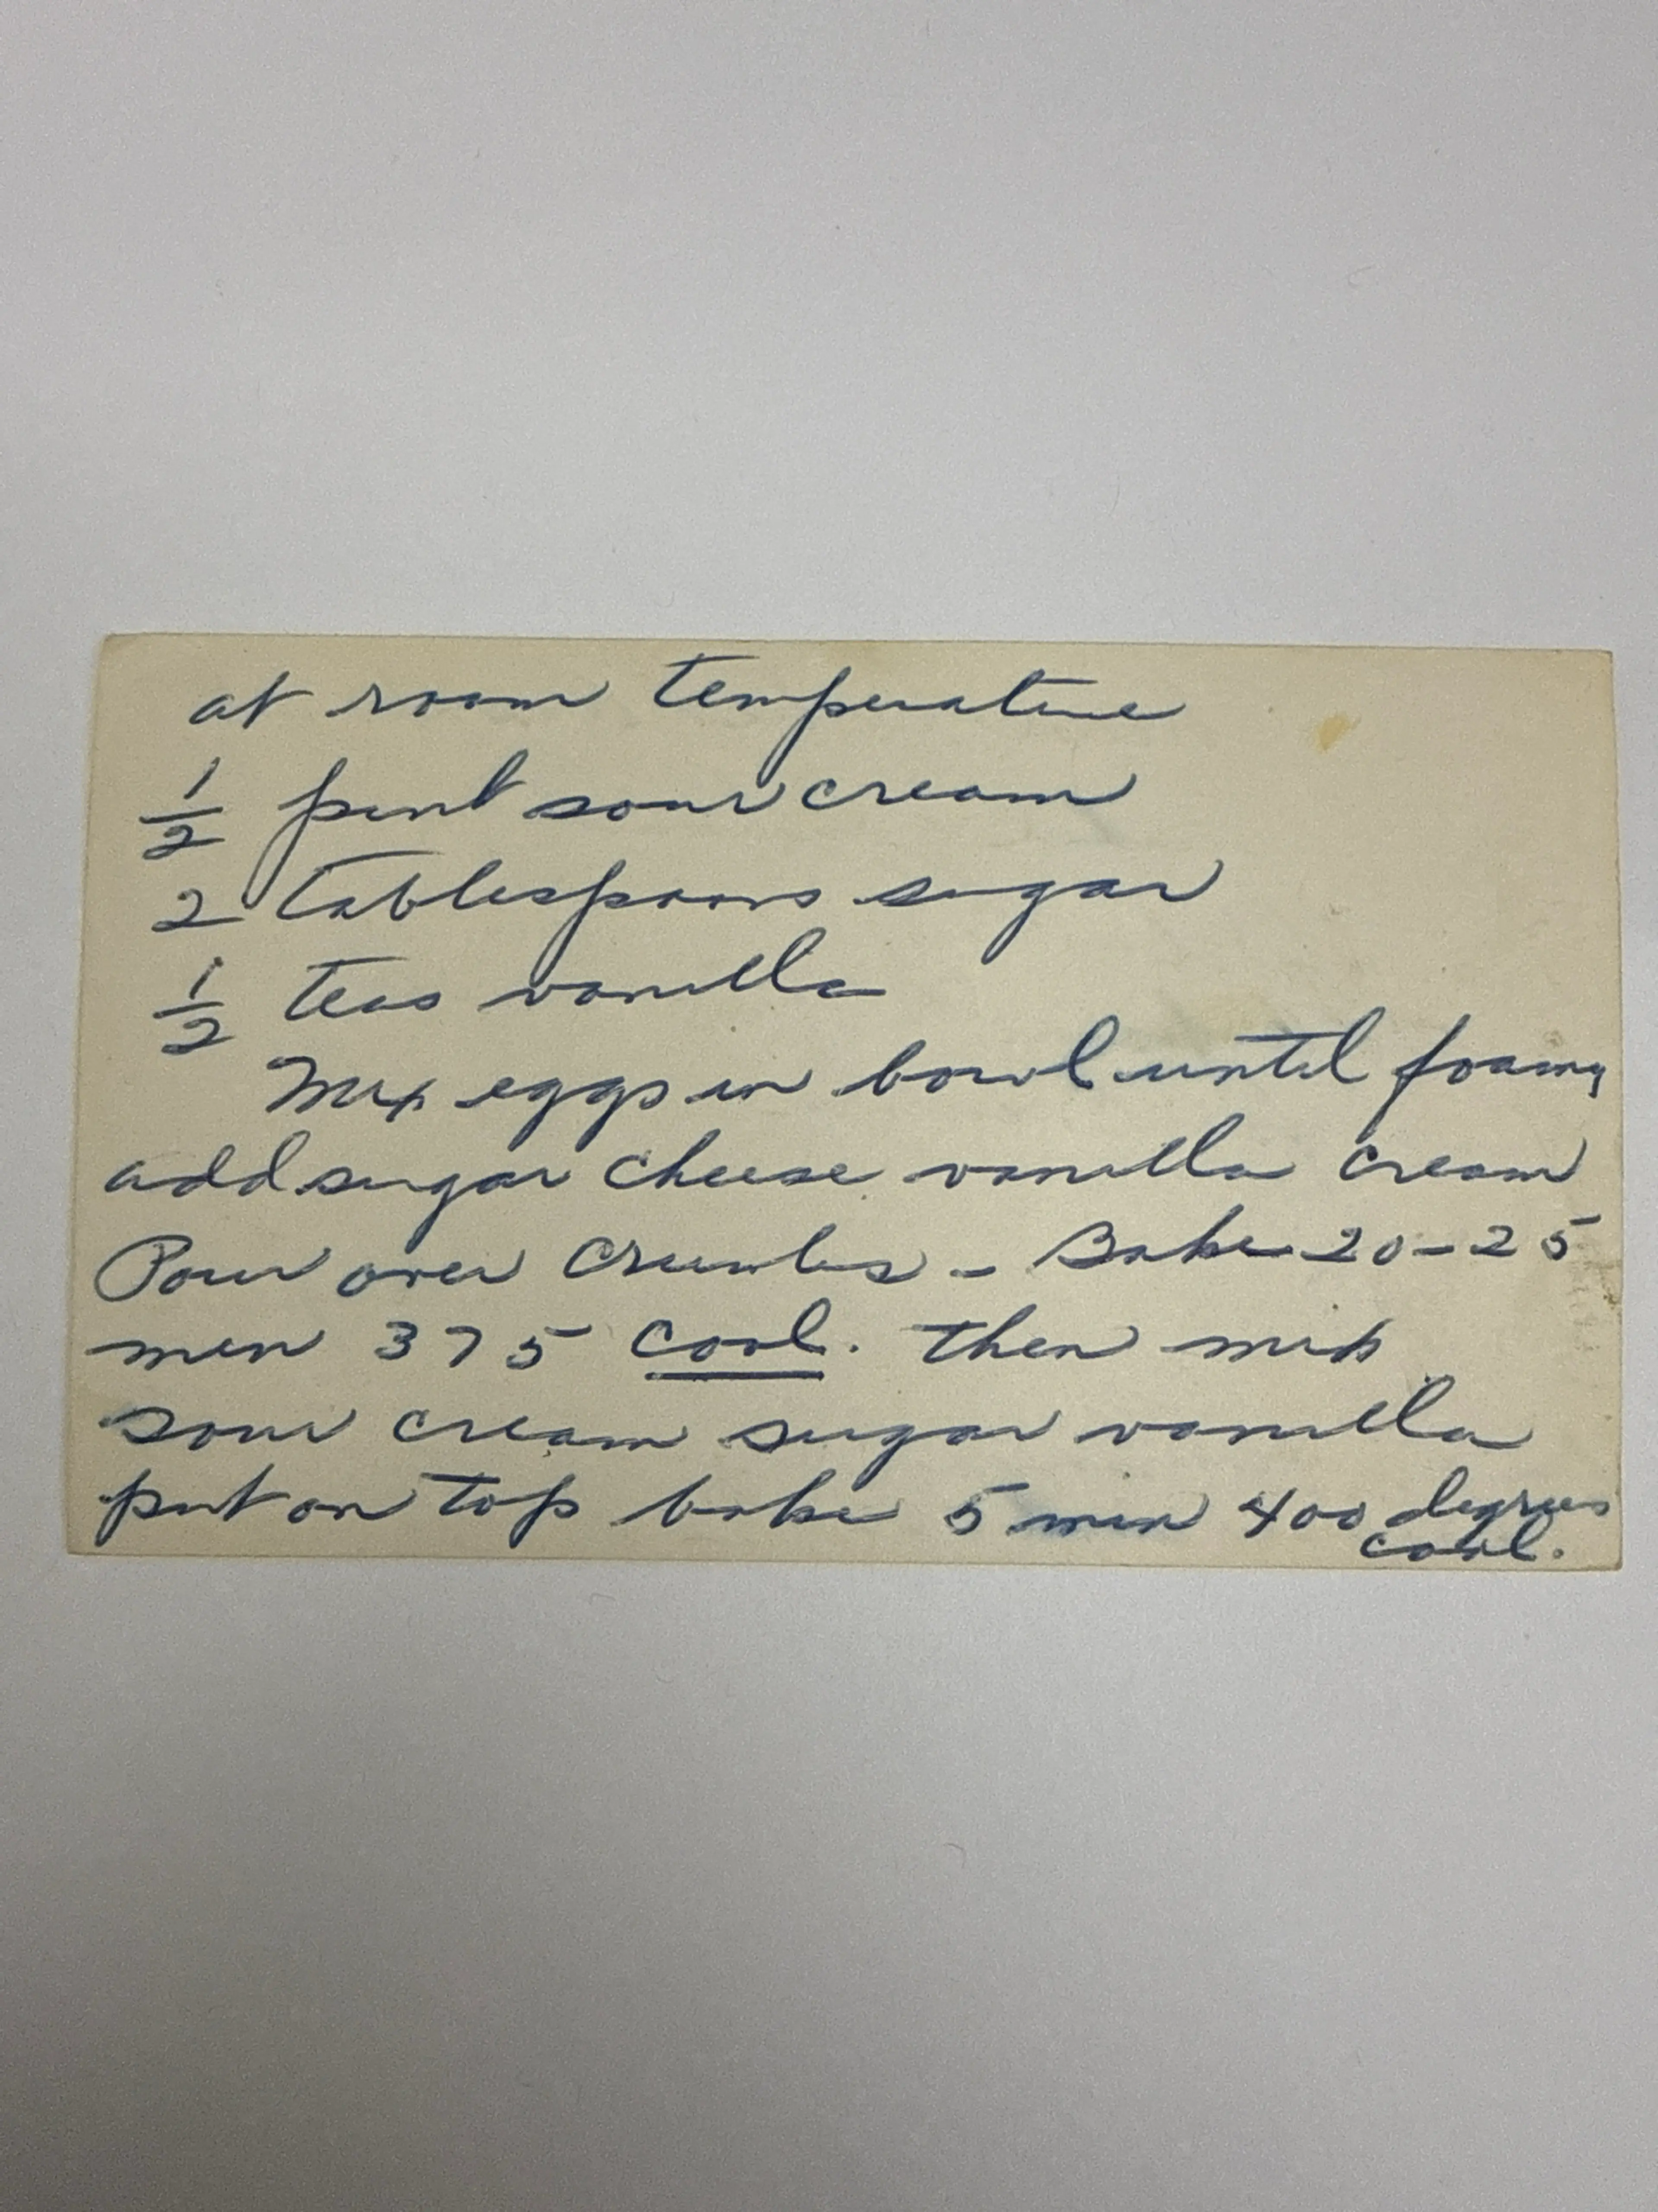 at room temperature
1/2 pint sour cream
2 tablespoons sugar
1/2 teas vanilla
Mix eggs in bowl until foamy
add sugar cheese vanilla cream
Pour over crumbs - Bake 20-25
min 375 cool. then mix
sour cream sugar vanilla
put on top bake 5 min 400 degrees
cool.